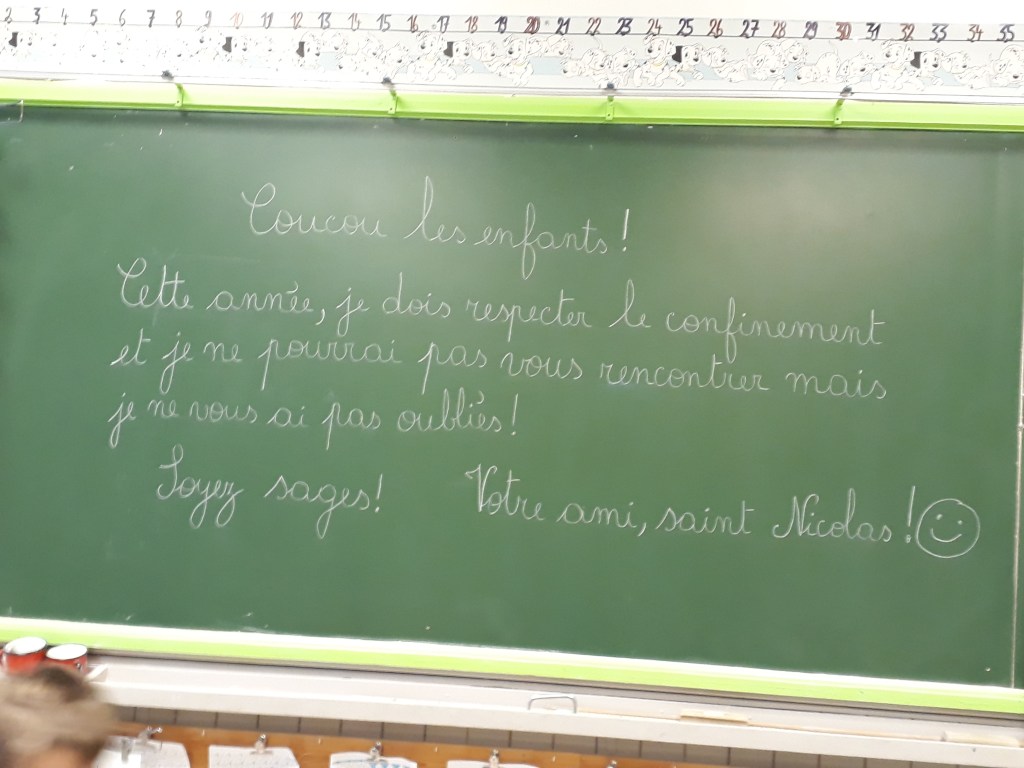 2 3 4 5 6 7 8 9 10 11 12 13 14 15 16 17 18 19 20 21 22 23 24 25 26 27 28 29 30 31 32 33 34 35
Coucou les enfants !
Cette année, je dois respecter le confinement
et je ne pourrai pas vous rencontrer mais
je ne vous ai pas oubliés !
Soyez sages ! Votre ami, saint Nicolas !